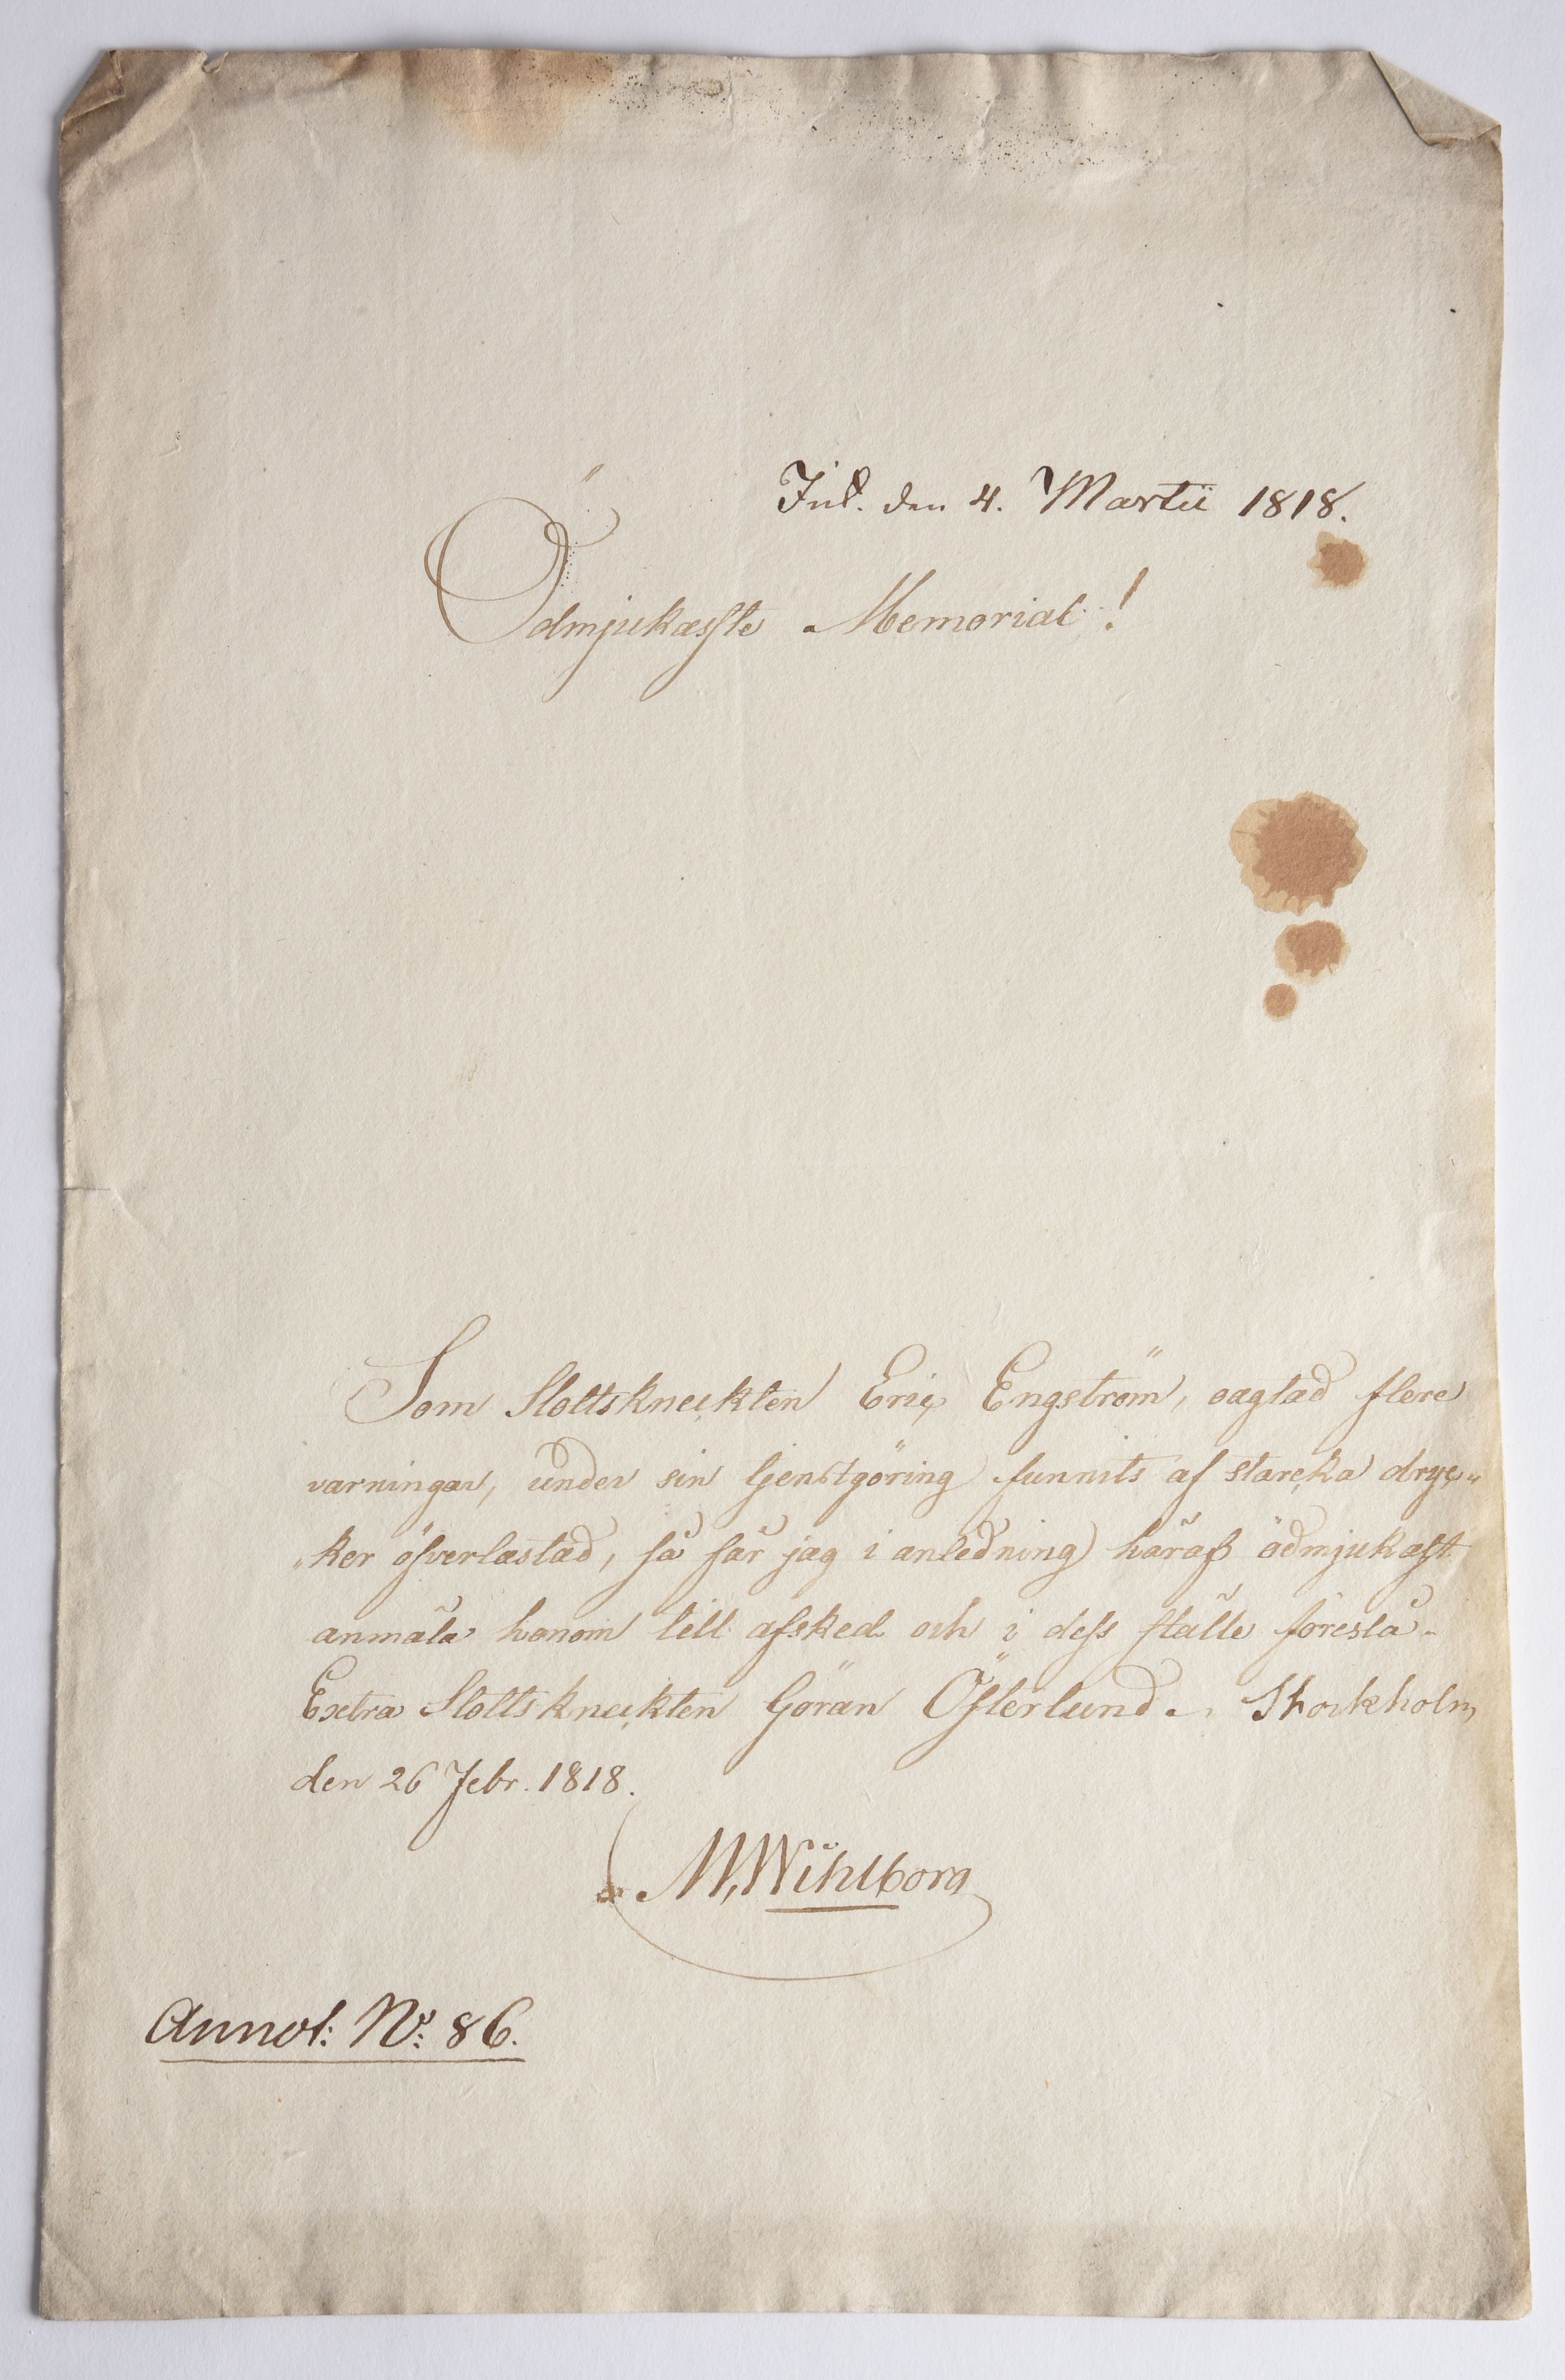 Inl. den 4. Martii 1818.
Ödmjukasste Memorial!
Som Slottskneckten Eric Engström, oagtad flere
varningar, under sin tjenstgöring funnits af starcka dryc„
„ker öfverlastad, så får jag i anledning häraf ödmjukast
anmäla honom till afsked och i dess ställe föreslå
Extra Slottskneckten Göran Österlund. Stockholm
den 26 Febr. 1818.
M, Wihlborg
Annot: No: 86.